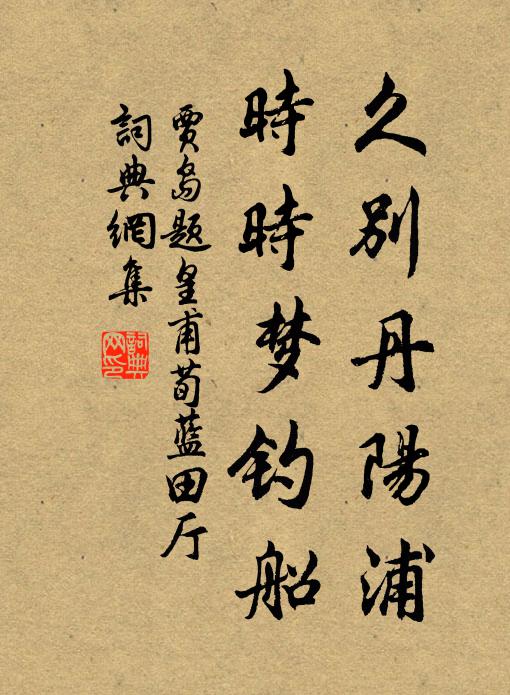 久别丹陽浦
時時梦钓船
賈島题皇甫荀藍田厅
詞典網集
詞典网印